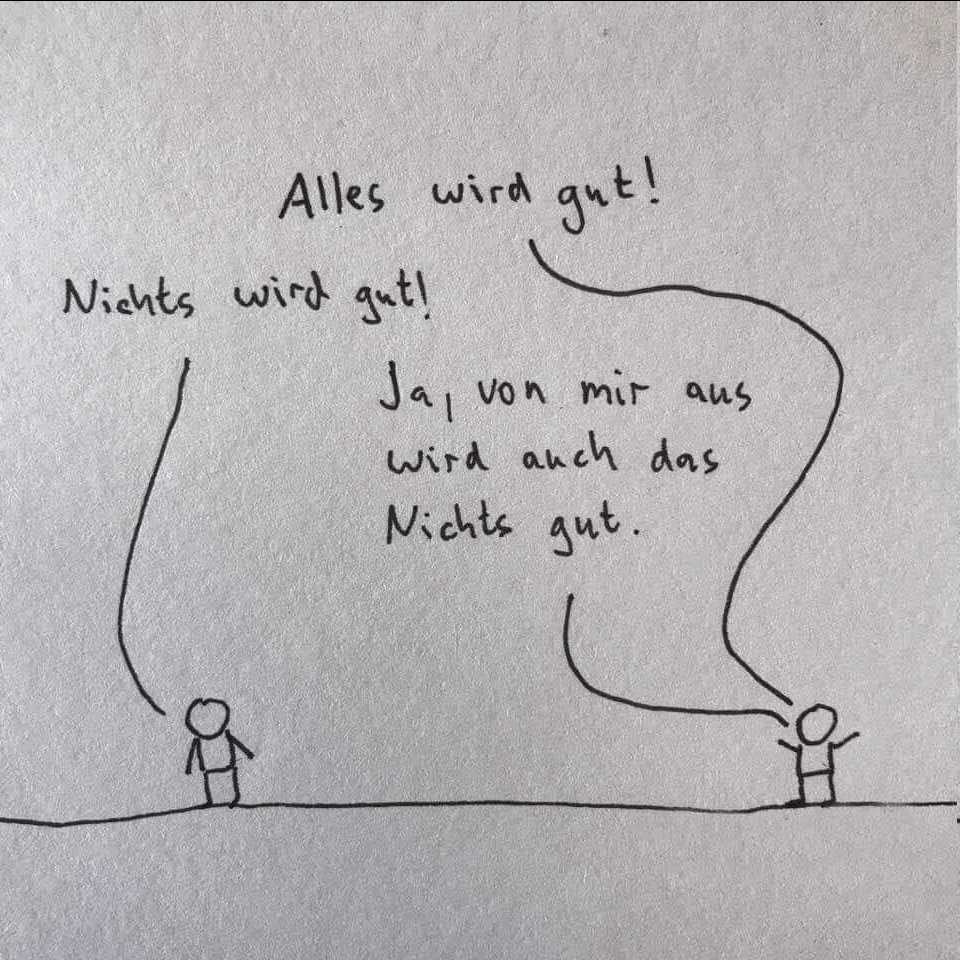 Alles wird gut!
Nichts wird gut!
Ja, von mir aus
wird auch das
Nichts gut.